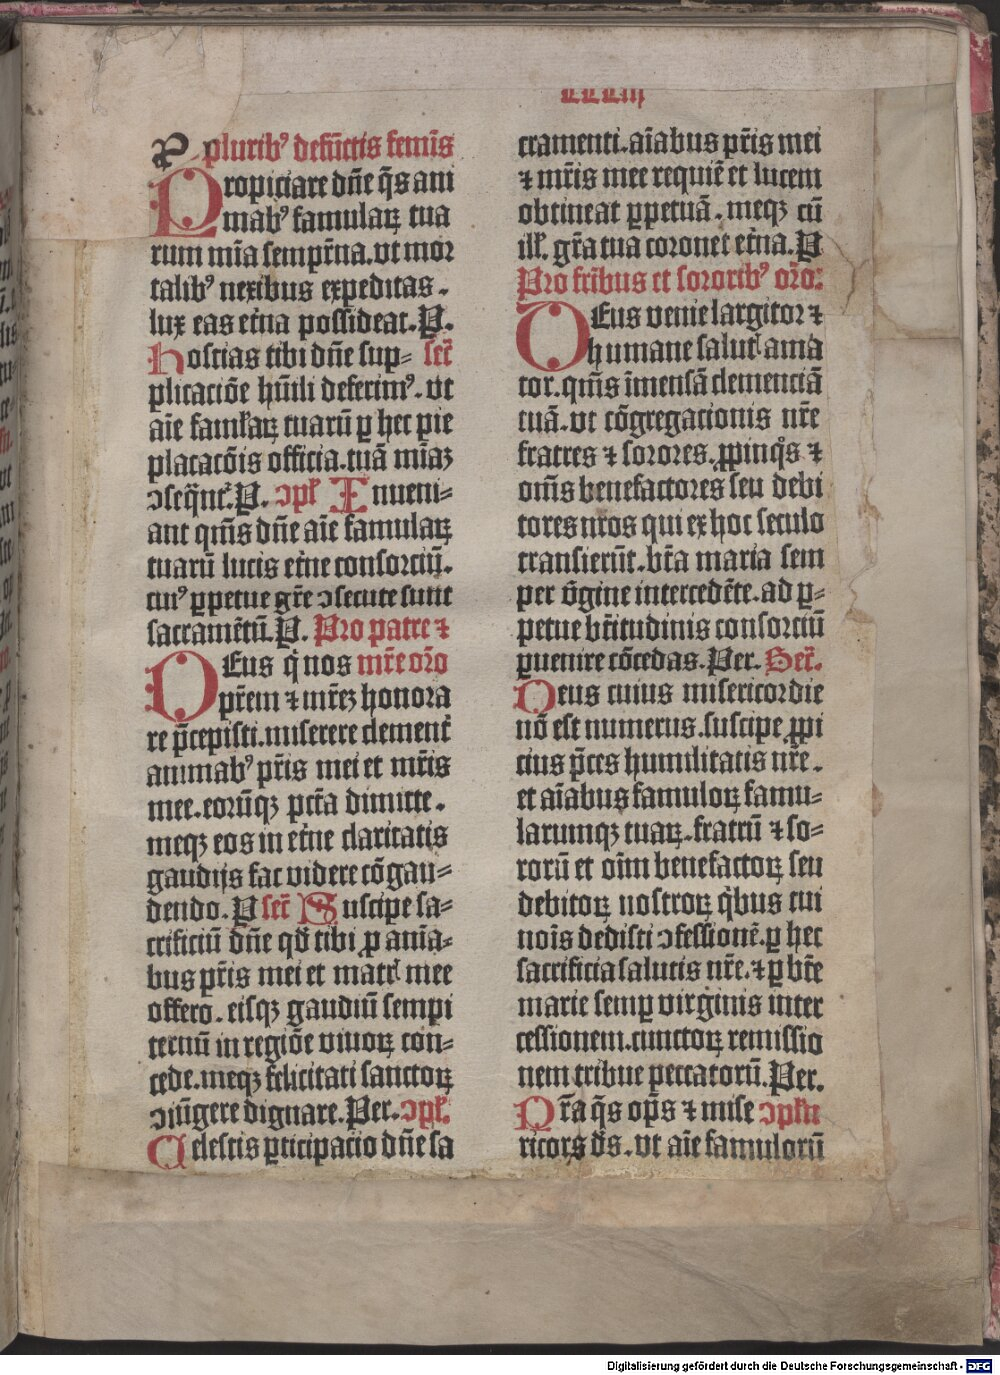 xxxiij
P pluribꝰ defūctis femīs
Propiciare dn̄e q̄s ani
mabꝰ famulaꝝ tua
rum mīa semṗt̄na. vt mor
talibꝰ nexibus expeditas.
lux eas et̄na possideat. P.
Hostias tibi dn̄e sup- sec̄r
plicaciōe hūili deferimꝰ. vt
aīe famłaꝝ tuarū ꝑ hec pie
placacōis officia. tuā mīaꝫ
ↄseq̄nt̄. P. ↄpł Inueni-
ant qm̄s dn̄e aīe famulaꝝ
tuarū lucis et̄ne consorciū.
cuiꝰ ꝑpetue gr̄e ↄsecute sunt
sacramētū. P. Pro patre ⁊
DEus q̇ nos mr̄e or̄o
pr̄em ⁊ mr̄eꝫ honora
re p̄cepisti. miserere clement̄
animabꝰ pr̄is mei et mr̄is
mee. eorūqꝫ pctā dimitte.
meqꝫ eos in et̄ne claritatis
gaudijs fac videre cōgau-
dendo. P sec̄r Suscipe sa-
crificiū dn̄e qď tibi ꝓ anīa-
bus pr̄is mei et matrꝭ mee
offero. eisqꝫ gaudiū sempi
ternū in regiōe viuoꝝ con-
cede. meqꝫ felicitati sanctoꝝ
ↄiūgere dignare. Per. ↄpł.
Celestis ꝑticipacio dn̄e sa
cramenti. aīabus pr̄is mei
⁊ mr̄is mee requiē et lucem
obtineat ꝑpetuā. meqꝫ cū
ill̄. gr̄a tua coronet et̄na. P
Pro fr̄ibus et sororibꝰ or̄o:
DEus venie largitor ⁊
humane salutꝭ ama
tor. qm̄s īmensā clemenciā
tuā. vt cōgregacionis nr̄e
fratres ⁊ sorores. ꝓpinq̊s ⁊
om̄s benefactores seu debi
tores nr̄os qui ex hoc seculo
transierūt. bt̄a maria sem
per v̄gine intercedēte. ad ꝑ-
petue bt̄itudinis consorciū
ꝑuenire cōcedas. Per. Sec̄r.
Deus cuius misericordie
nō est numerus. suscipe ꝓpi
cius p̄ces humilitatis nr̄e.
et aīabus famuloꝝ famu-
larumqꝫ tuaꝝ. fratrū ⁊ so-
rorū et oīm benefactoꝝ seu
debitoꝝ nostroꝝ q̇bus tui
noīs dedisti ↄfessionē. ꝑ hec
sacrificia salutis nr̄e. ⁊ ꝑ bt̄e
marie semꝑ virginis inter
cessionem. cunctoꝝ remissio
nem tribue peccatorū. Per.
Pr̄a q̄s op̄s ⁊ mise ↄpłn
ricors ds̄. vt aīe famulorū
Digitalisierung gefördert durch die Deutsche Forschungsgemeinschaft - DFG